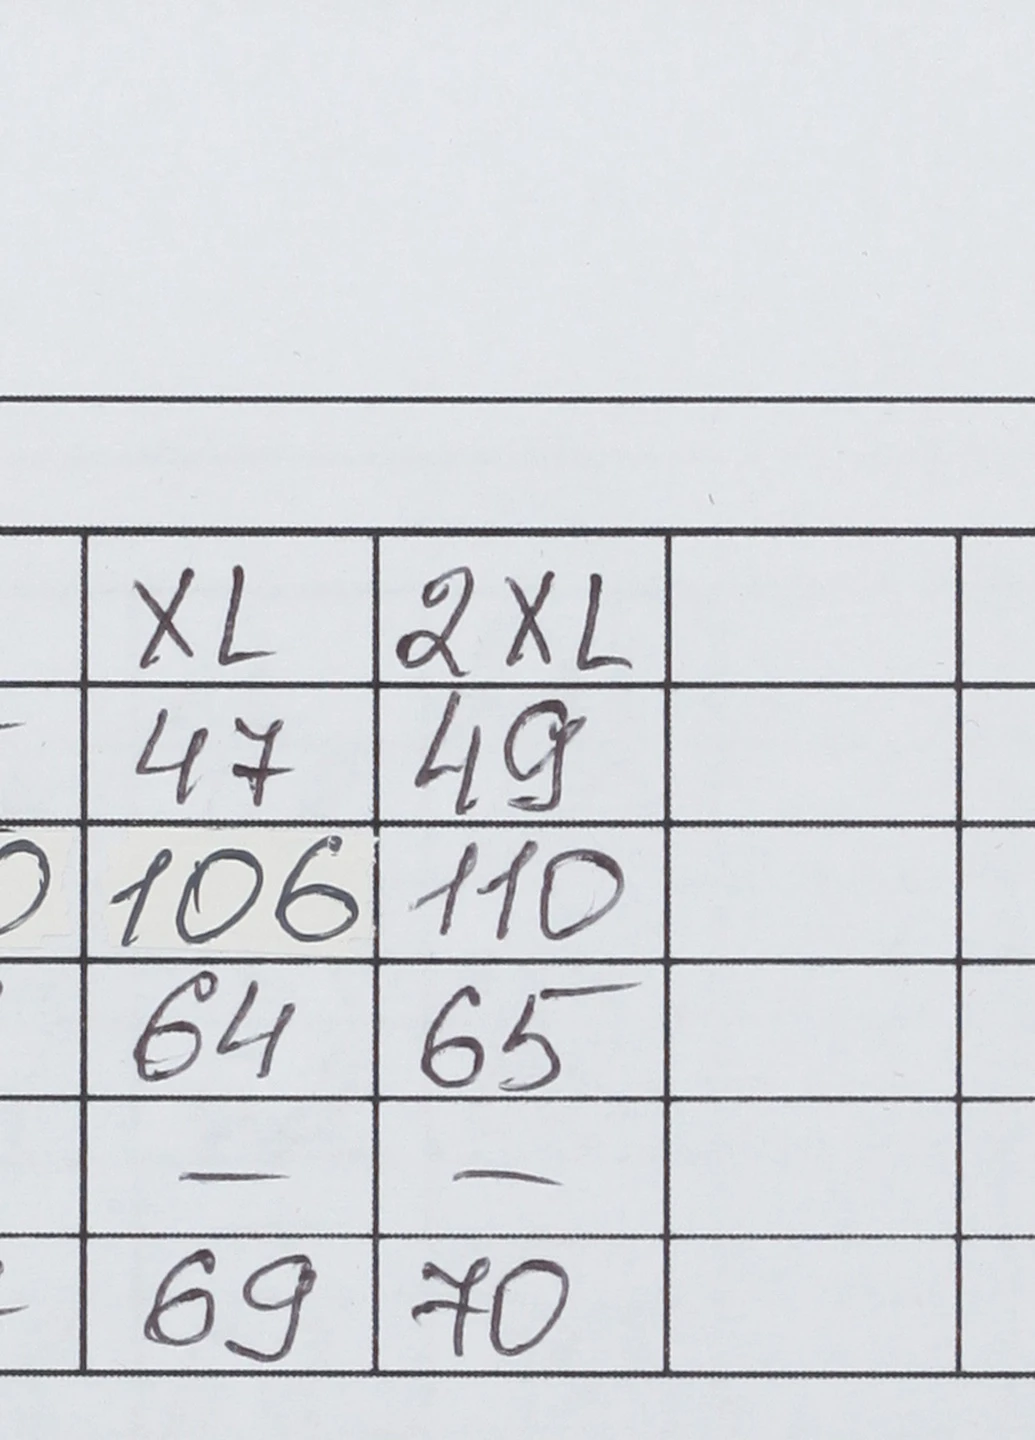 XL 2XL
47 49
0 106 110
64 65
— —
69 70